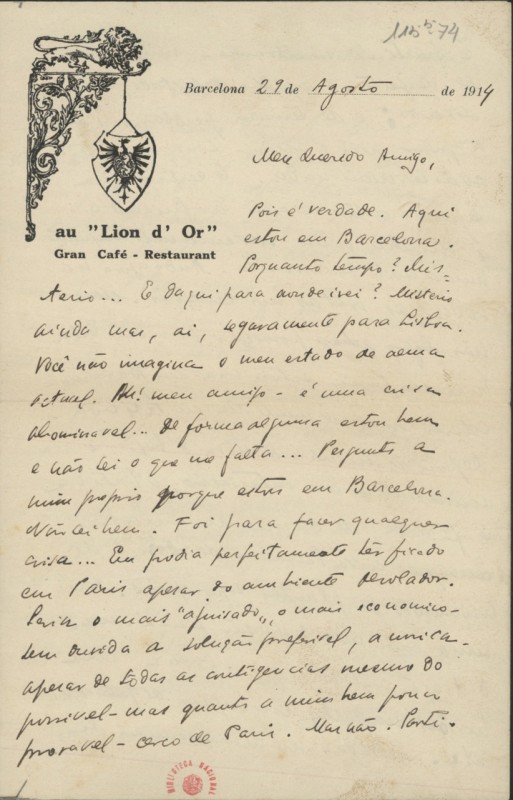 115⁵-74
Barcelona 29 de Agosto de 1914
au "Lion d' Or"
Gran Café - Restaurant
Meu Querido Amigo,
Pois é verdade. Aqui
estou em Barcelona.
Porquanto tempo? Mis-
terio... E daqui para aonde irei? Misterio
ainda mas, ai, seguramente para Lisboa.
Você não imagina o meu estado de alma
actual. Ah! meu amigo - é uma coisa
abominavel... De forma alguma estou bem
e não sei o que me falta... Pergunto a
mim proprio porque estou em Barcelona.
Não sei bem. Foi para fazer qualquer
coisa... Eu podia perfeitamente ter ficado
em Paris apesar do ambiente desolador.
Seria o mais "ajuisado", o mais economico -
sem duvida a solução preferivel, a unica -
apesar de todas as contigencias mesmo do
possivel - mas quanto a mim bem pouco
provavel - cerco de Paris. Mas não. Parti -
BIBLIOTECA NACIONAL